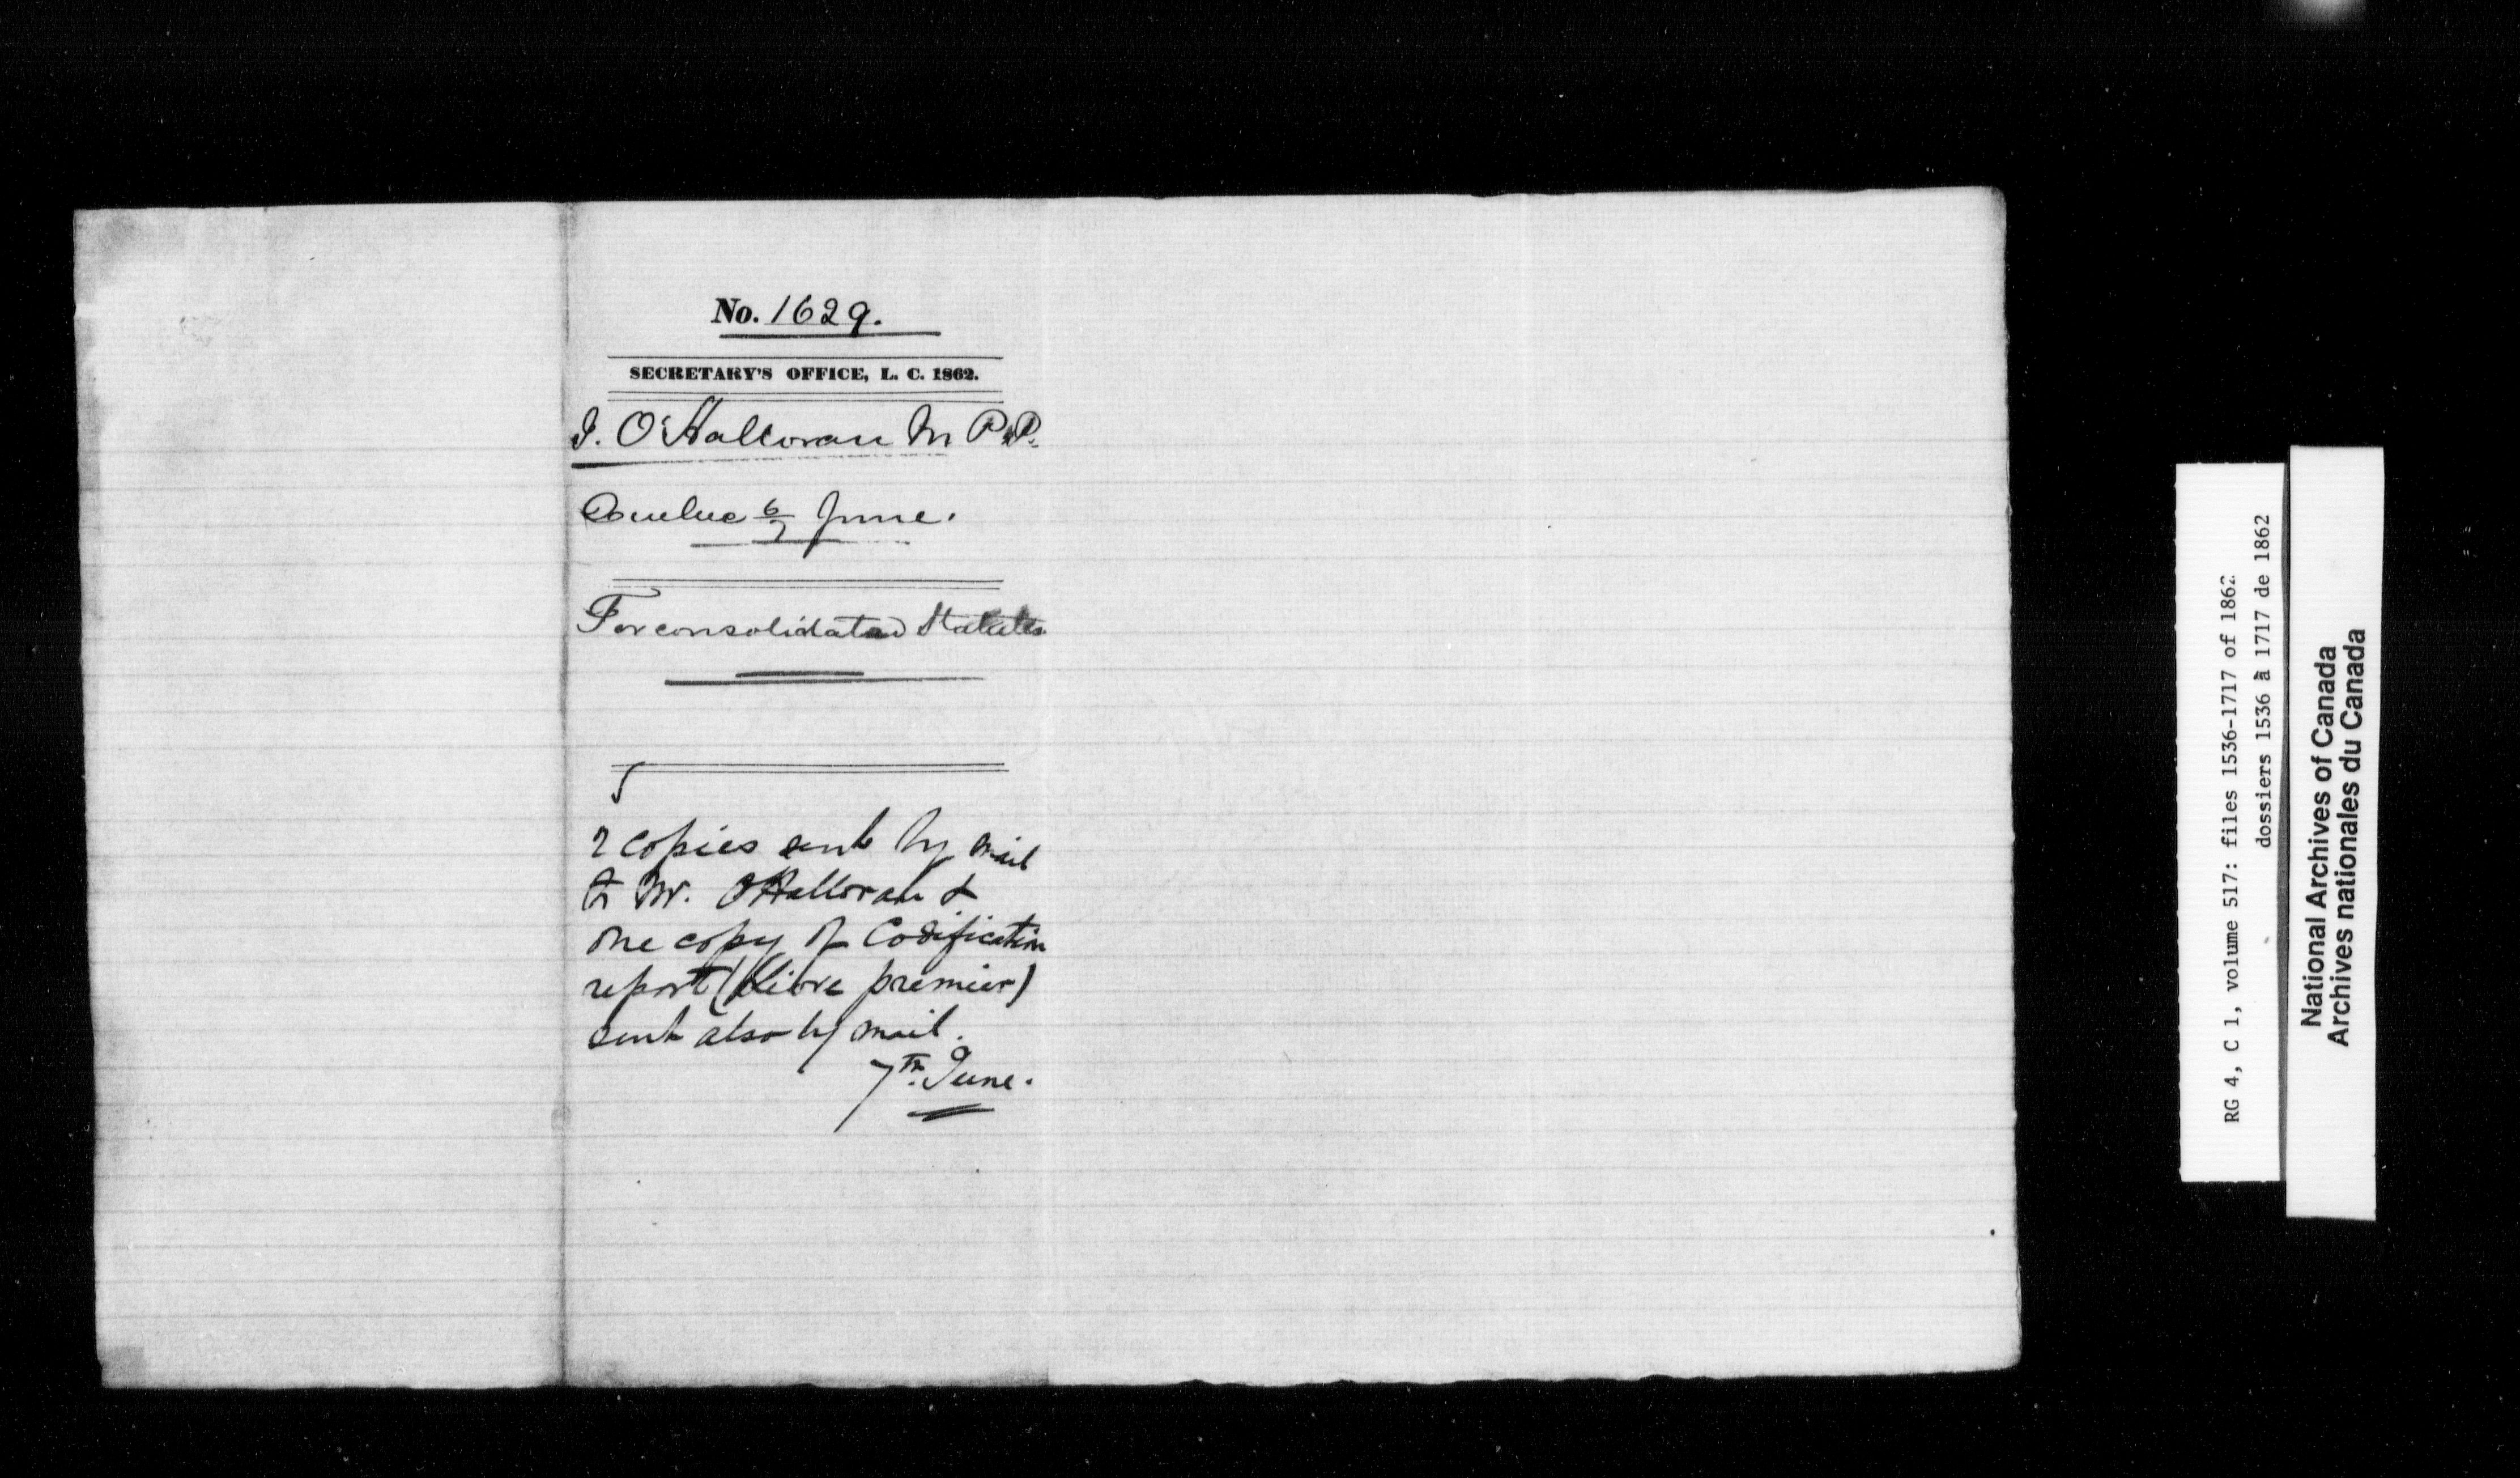 No. 1629.
SECRETARY'S OFFICE, L. C. 1862.
J. O'Halloran M P.P.
Quebec 6/7 June.
For consolidated Statutes
2 copies sent by mail
to Mr. O'Halloran &
one copy of Codification
report (Livre premier)
sent also by mail.
7th. June.
RG 4, C 1, volume 517: files 1536-1717 of 1862
dossiers 1536 à 1717 de 1862
National Archives of Canada
Archives nationales du Canada